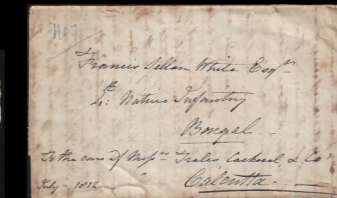 No 7
Francis Sellon White Esqr
Lt: Native Infantry
Bengal
To the care of Messrs Trales, Cockerel, & Co
Calcutta.
July - 1812